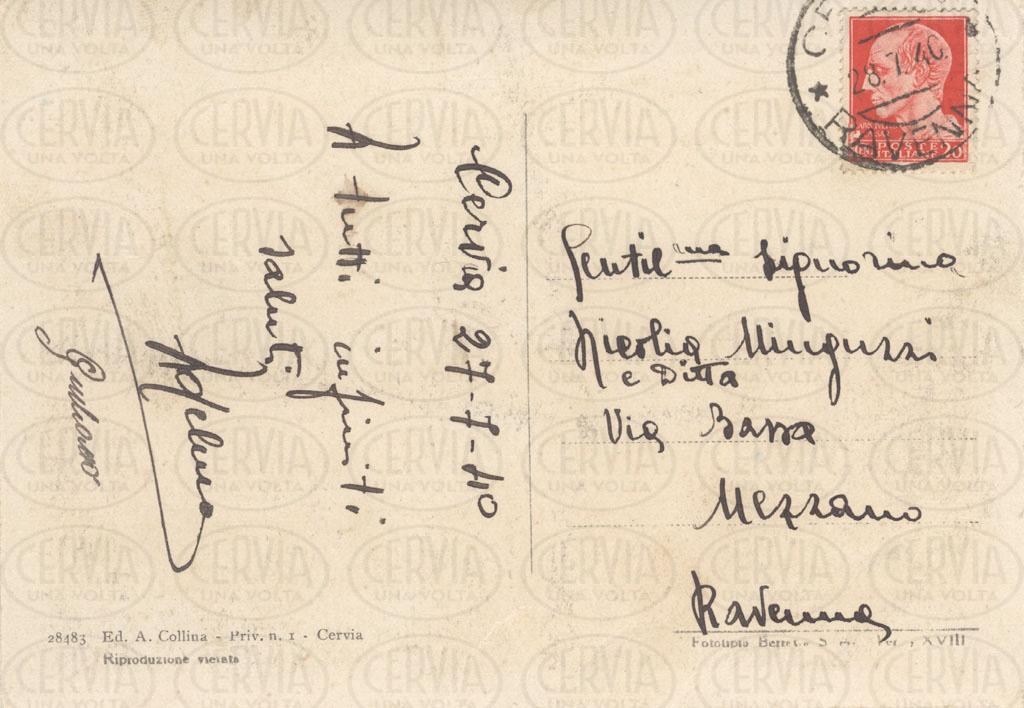 Cervia 27-7-40
A tutti infiniti
saluti
Adelmo
Giulia
CE
28.7.40.
RAVENNA
POSTE
Gentil ma Signorina
Minguzzi
e Ditta
Via Bassa
Mezzano
Ravenna
28483 Ed. A. Collina - Priv. n. 1 - Cervia
Riproduzione vietata
Fototipia S. A. XVIII
CERVIA
UNA VOLTA